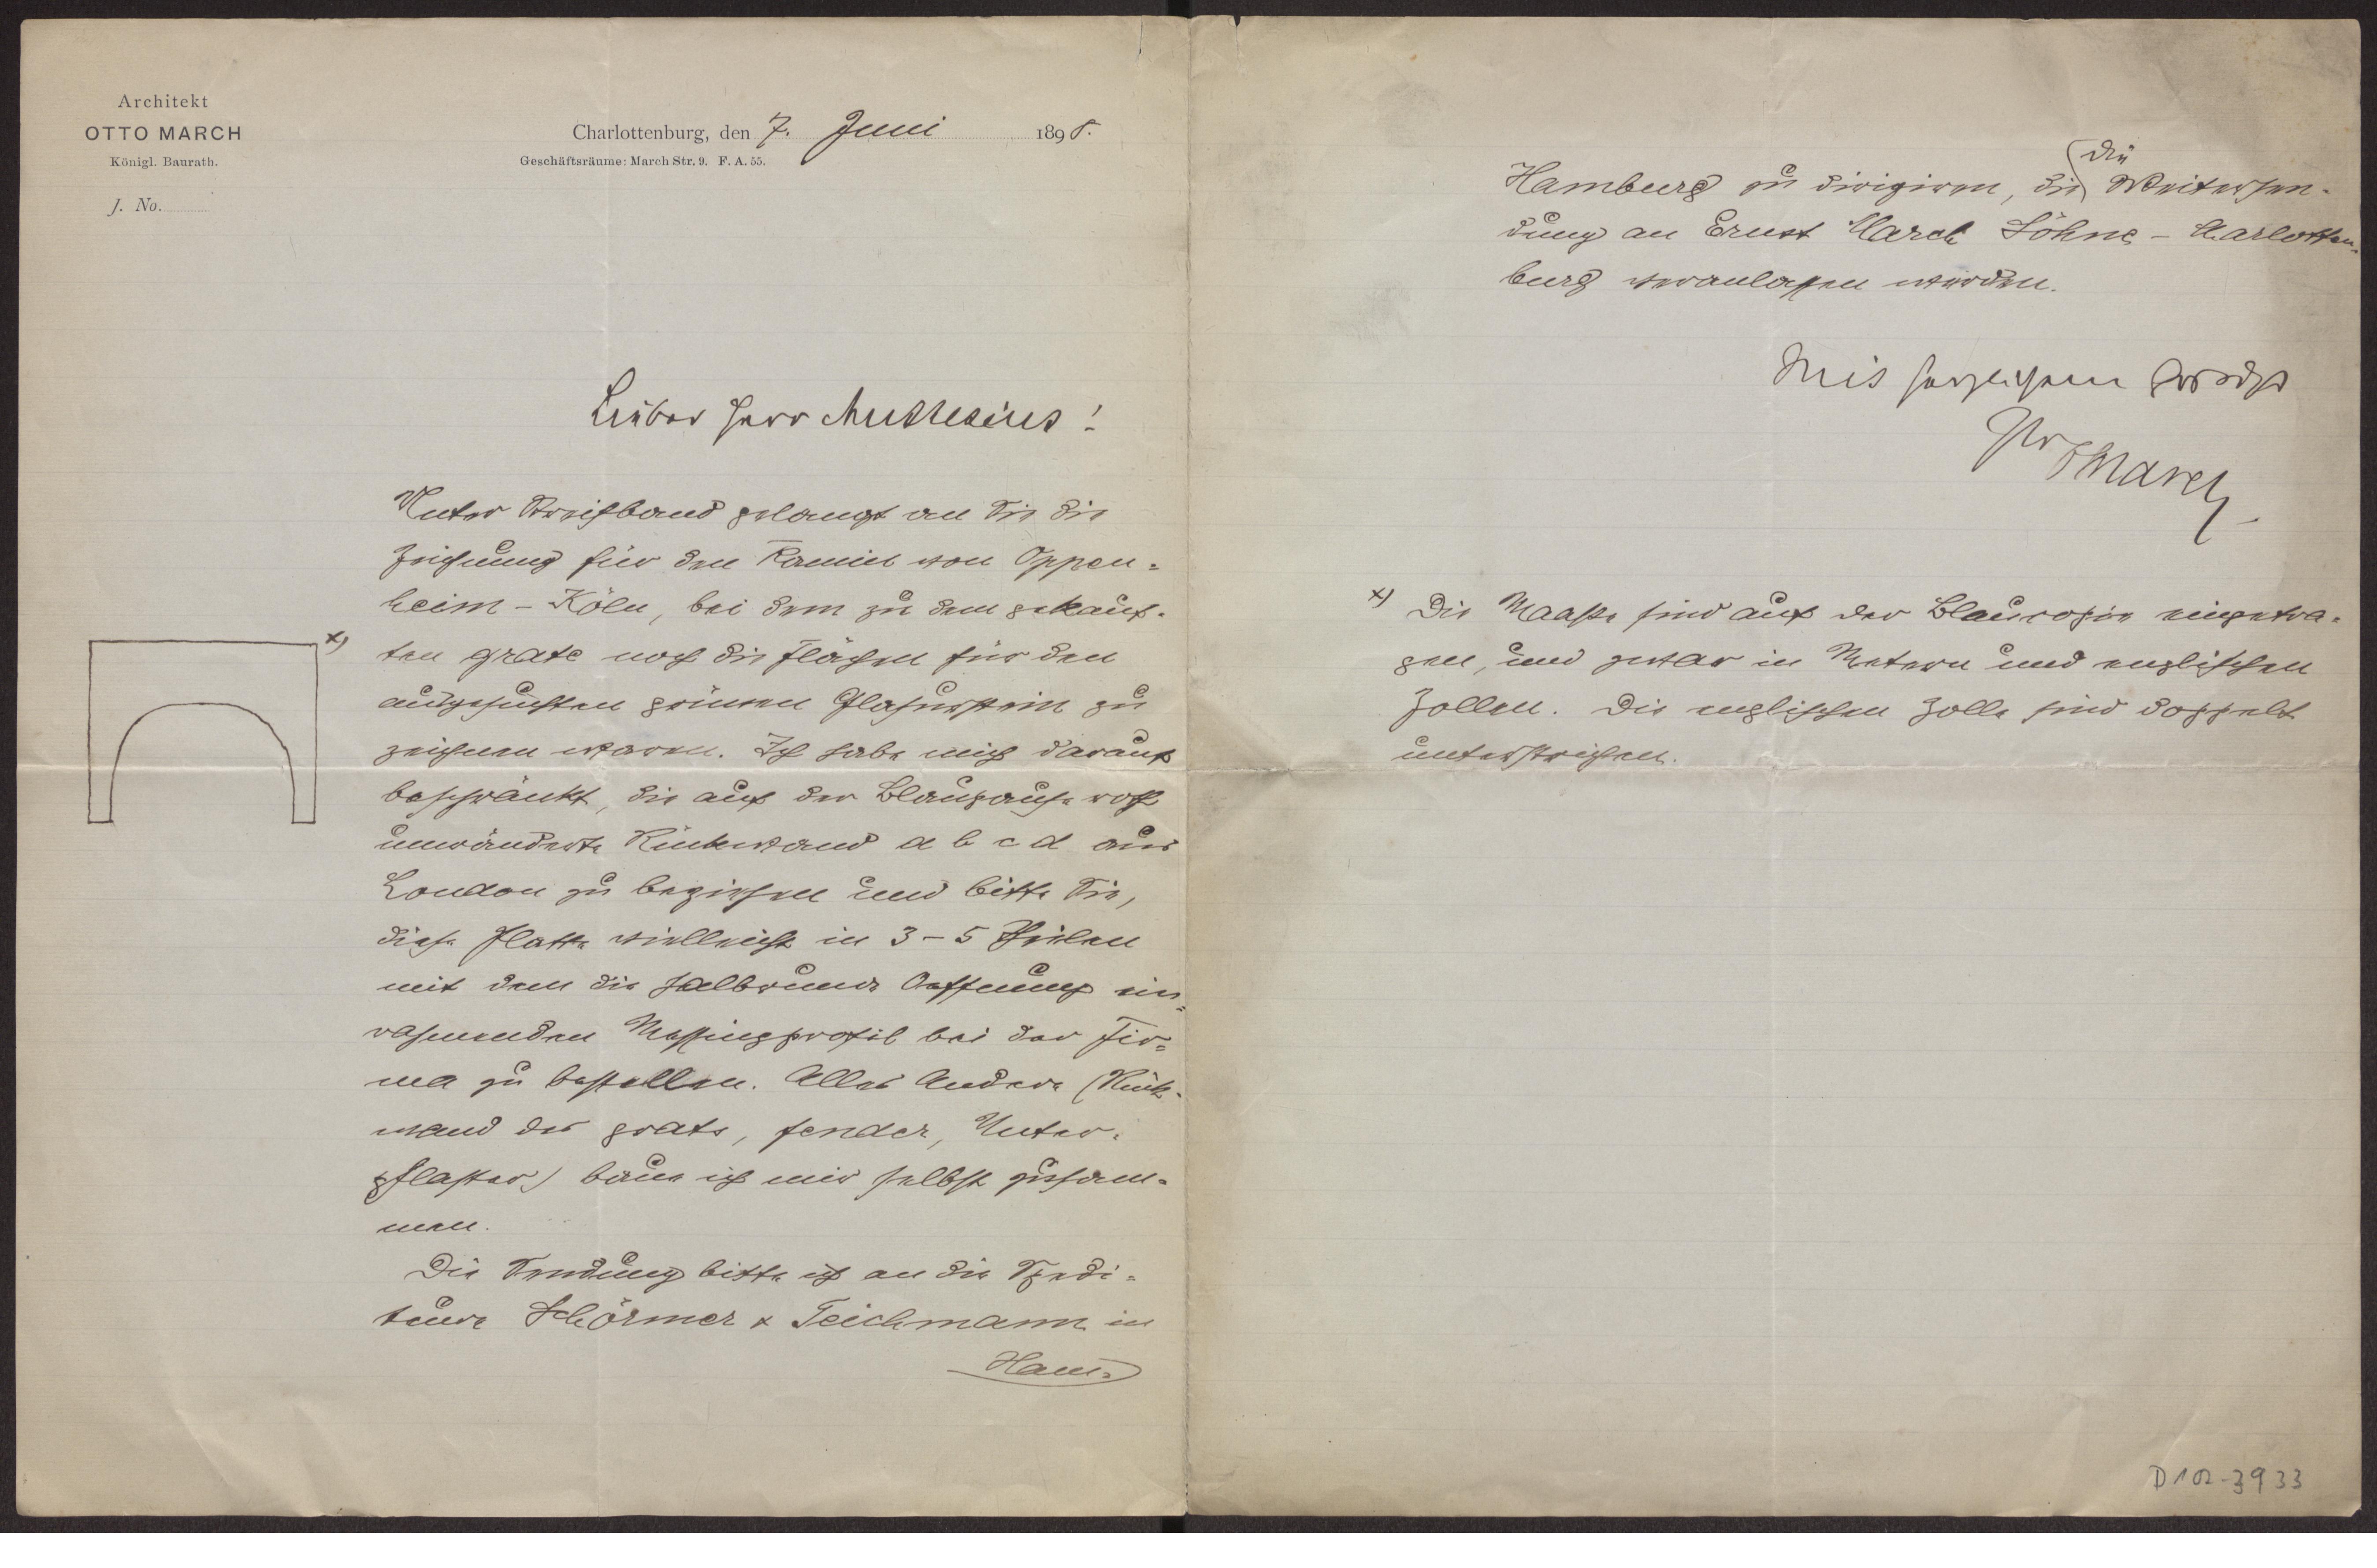 Architekt
OTTO MARCH
Königl. Baurath.
J. No.
Charlottenburg, den 7. Juni 1898.
Geschäftsräume: March Str. 9. F. A. 55.
Lieber Herr Muthesius!
Unter Streifband gelangt an Sie die
Zeichnung für den Kamin von Oppen-
heim - Köln, bei dem zu dem gekauf-
x) ten grate noch die Flächen für den
ausgesuchten grünen Glasurstein zu
zeichnen waren. Ich habe mich darauf
beschränkt, die auf der Blaupause roth
umränderte Rückwand a b c d aus
London zu beziehen und bitte Sie,
diese Platte vielleicht in 3 - 5 Theilen
mit dem die halbrunde Oeffnung ein-
rahmenden Messingprofil bei der Fir-
ma zu bestellen. Alles Andere (Rück-
wand des grate, fender, Unter-
pflaster) baue ich mir selbst zusam-
men.
Die Sendung bitte ich an die Spedi-
teure Schörmer & Teichmann in
Ham-
Hamburg zu dirigiren, die (die Weitersen-
dung an Ernst March Söhne - Charlotten-
burg veranlassen werden.
Mit herzlichem
Ihr
OMarch
x) Die Maaße sind auf der Blaucopie eingetra-
gen, und zwar in Metern und englischen
Zollen. Die englischen Zolle sind doppelt
unterstrichen.
D102-3933